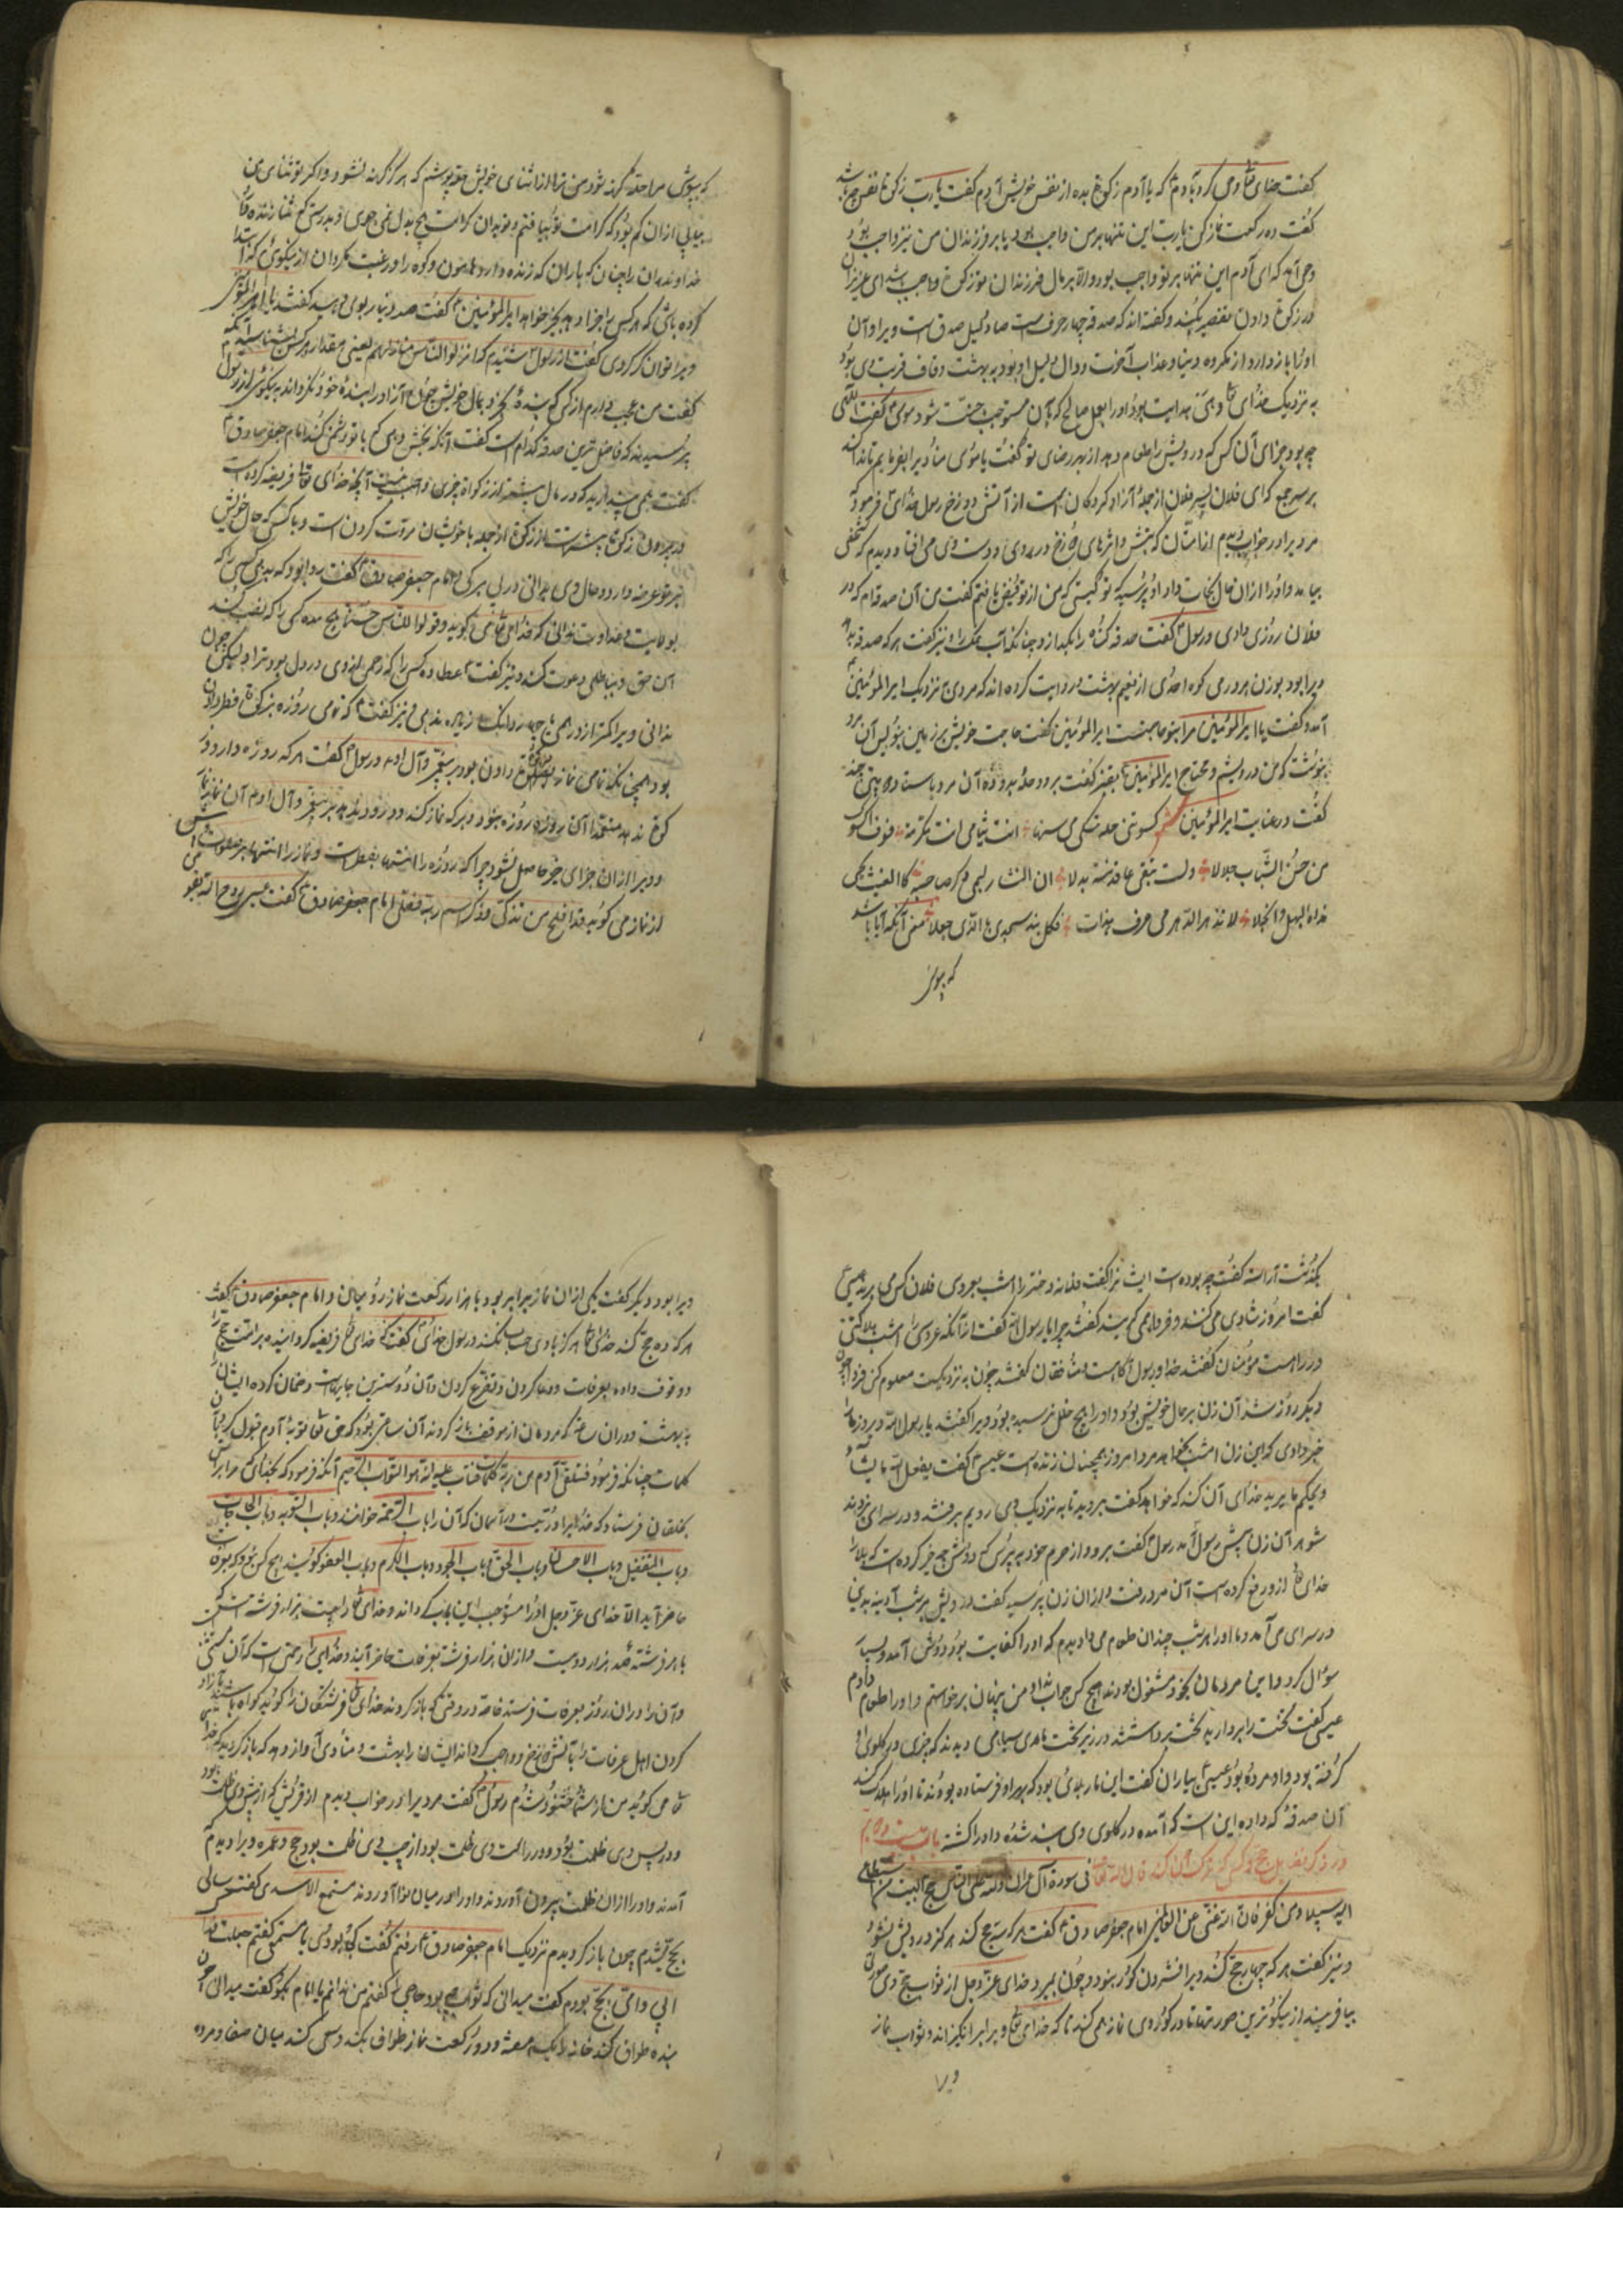 گفت خدای تعالی وحی کرد بآدم که یا آدم زکوة بده از نفس خویش آدم گفت یارب زکوة نفس چه باشد
گفت ده رکعت نماز کن یارب این تنها بر من واجب بود یا بر فرزندان من نیز واجب بود
وحی آمد که ای آدم این تنها بر تو واجب بود و الا بر مال فرزندان تو زکوة واجب باشد ای عزیزان
در زکوة دادن تقصیر مکنید و گفته‌اند که صدقه چهار حرف است صاد دلیل صدق است ویرا و آن
او را باز دارد از مکروه دنیا و عذاب آخرت و دال دلیل او بود به بهشت و قاف قربت وی بود
به نزدیک خدای تعالی و هی هدایت بود او را بعمل صالح که بآن مستوجب جنت شود موسی گفت الهی
چه بود جزای آن کس که درویش را طعام دهد از بهر رضای تو گفت یا موسی منادیرا بفرمایم تا ندا کند
بر سر جمع که ای فلان پسر فلان از جمله آزاد کردگان است از آتش دوزخ رسول خدای فرمود که
مردیرا در خواب دیدم از امتان که آتش و اثرهای دوزخ در روی و دست وی می افتاد و دیدم که شخصی
بیامد و او را از آن حال نجات داد او پرسید تو کیستی که من از تو یافتم گفت من آن صدقه‌ام که در
فلان روز وی دادی و رسول گفت صدقه گناه را بگدازد چنانکه آب نمک را و نیز گفت هر که صدقه بدهد
ویرا بود بوزن هر درمی کوه احدی از نعیم بهشت و روایت کرده اند که مردی نزدیک امیرالمؤمنین
آمد و گفت یا امیرالمؤمنین مرا بتو حاجتست امیرالمؤمنین گفت حاجت خویش بر زمین بنویس آن مرد
بنوشت که من درویشم و محتاج امیرالمؤمنین بقنبر گفت برو و حله بدو ده آن مرد بایستاد و بیتی چند
گفت در عنایت امیرالمؤمنین شعر کسوتنی حلة تبلی محاسنها انت ثیابی انت مکرمة فسوف اکسوک
من حسن الثناء حللا ولست تبقی بما قدمته بدلا ان الثناء لیحیی ذکر صاحبه کالغیث یحیی
نداه السهل والجبلا لا تزهد الدهر فی عرف بدات فکل عبد سیجزی بالذی فعلا معنی آنکه آیا باشد
که بپوش
که بپوشی مرا حله کهنه شود من ترا از ثنای خویش حله پوشم که هرگز کهنه نشود و اگر تو ثنای من
خداوند آن را چنان که باران که زنده دارد هامون و کوه را و رغبت مگردان از نیکوئی که ابتدا
کرده باشی که هر کسی را جزا دهند بخیر خواهد امیرالمؤمنین گفت صد دینار بوی دهید گفتند یا امیرالمؤمنین
ویرا توانگر کردی گفت از رسول شنیدم که انزلوا الناس منازلهم یعنی مقدار هر کس بشناسید آنگه
گفت من عجب دارم از کسی که بنده بخرد بمال خویش چون آزاد را بنده خود نگرداند به نیکوئی از رسول
پرسیدند که فاضل ترین صدقه کدام است گفت آنکه بخشش دهی که با تو دشمنی کند امام جعفر صادق
گفت همی پندارید که در مال بیشتر از زکوة چیزی واجب نیست آنچه خدای تعالی فریضه کرده است
در بیرون زکوة بیشتر است از زکوة از جمله با خویشان مروت کردن است و با کسی که حال خویش
بر تو عرضه دارد و حال وی ندانی امام جعفر صادق گفت روا بود که بدهی کسی را که
بولایت و عداوت ندانی که خدای تعالی می گوید و قولوا للناس حسنا هیچ مده کسی را که نصب کند
این حق و بباطل دعوت کند و نیز گفت عطا ده کسی را که رحمی از وی در دل بود ترا و لیکن چون
ندانی ویرا کمتر از درهمی یا چهار دانگ زیاده ندهی و نیز گفت که تمامی روزه بزکوة فطر دادن
بود همچنانکه تمامی نماز بصلوة دادن بود بر پیغمبر و آل او و رسول گفت هر که روزه دارد و
زکوة ندهد متعمدا آن روزه روزه نبود و هر که نماز کند و درود ندهد بر پیغمبر و آل او هم آن نماز نماز
و ویرا از آن جزای خیر حاصل نشود چرا که روزه را انتها بفطر است و نماز را انتها بر صلوات است پس
از نماز می گوید قد افلح من تزکی و ذکر اسم ربه فصلی امام جعفر صادق گفت عیسی روح الله بقومی
بگذشت آراسته گفت چه بوده است ایشانرا گفت فلانه دختر را امشب بعروسی فلان کس می برند عیسی
گفت امروز شادی می کنند و فردا همی گریند گفتند چرا یا رسول الله گفت از آنکه عروس را امشب هلاکتی
در راهست مؤمنان گفتند خدا و رسول آگاهست منافقان گفتند چون به نزدیکست معلوم کن فردا چون
دیگر روز شد آن زن بر حال خویش بود و او را هیچ خلل نرسیده بود ویرا گفتند یا رسول الله دیروز ما را
خبر دادی که این زن امشب بخواهد مرد و امروز همچنان زنده است عیسی گفت یفعل الله ما یشاء
و یحکم ما یرید خدای آن کند که خواهد گفت بروید تا به نزدیک وی رویم برفتند و در سرای بزدند
شوهر آن زن پیش رسول آمد رسول گفت برو و از حرم خود بپرس که دوش چه خیر کرده است که بلا را
خدای تعالی ازو رفع کرده است آن مرد رفت و از آن زن پرسید گفت درویش هر شب آدینه بدین
در سرای می آمد و ما او را هر شب چندان طعام می دادیم که او را کفایت بود دوش آمد و بسیار
سؤال کرد و این مردمان بخود مشغول بودند هیچ کس جواب نداد من پنهان برخاستم و او را طعام دادم
عیسی گفت تخت را بردارید تخت برداشتند در زیر تخت ماری سیاهی دیدند که چیزی در گلوی او
گرفته بود و او مرده بود عیسی بیاران گفت این مار بلائی بود که بدو فرستاده بودند تا او را هلاک کند
آن صدقهٔ که داده این است که آمده در گلوی وی بسته شده و او را کشته باب بیست و دویم
در ذکر فضایل حج و کسی که ترک آن کند قال الله تعالی فی سورة آل عمران ولله علی الناس حج البیت من استطاع
الیه سبیلا ومن کفر فان الله غنی عن العالمین امام جعفر صادق گفت هر که سه حج کند هرگز درویش نشود
و نیز گفت هر که چهار حج کند ویرا فشردن گور نبود و چون بمیرد خدای عز و جل از ثواب حج وی صورتی
بیافریند از نیکوترین صورتها تا در گور وی نماز همی کند تا که خدای تعالی ویرا برانگیزاند و ثواب نماز
ویرا
ویرا بود و دیگر گفت یکی از آن نماز برابر بود با هزار رکعت نماز و امام جعفر صادق گفت
هر که ده حج کند خدای تعالی هرگز با وی حساب نکند و رسول خدای گفت که خدای تعالی فریضه گردانیده بر امت حج را
و وقوف داده بعرفات و دعا کردن و تضرع کردن و آن دوسترین جایهاست و ضمان کرده ایشان
به بهشت و در آن ساعت که مردمان از موقف باز گردند آن ساعتی بود که حق تعالی توبهٔ آدم قبول کرد بآن
کلمات چنانکه فرمود فتلقی آدم من ربه کلمات فتاب علیه انه هو التواب الرحیم آنگه فرمود که بخدائی که مرا براستی
بخلقان فرستاد که خدایرا دریست در آسمان که آن را باب الرحمة خوانند و باب التوبه و باب الحاجات
و باب التفضل و باب الاحسان و باب الحق و باب الجود و باب الکرم و باب العفو گویند هیچ کس نبود که بعرفات
حاضر آید الا خدای عز و جل او را مستوجب این باب گرداند و خدای تعالی را بیست هزار فرشته است
با هر فرشته صد هزار و بیست و از آن هزار فرشته بعرفات حاضر آیند و خدایرا رحمتی است که آن مستثنی
و آن را در آن روز بعرفات فرستد خاصه در وقتی که باز گردند خدای تعالی فرشتگان را گوید گواه باشید بآزاد
کردن اهل عرفات را از آتش دوزخ و واجب گرداند ایشان را بهشت و منادی آواز دهد که باز گردید که خدا
تعالی می گوید من از شما خشنود شدم رسول گفت مردیرا در خواب دیدم از قریش که از پیش وی ظلمت بود
و در پس وی ظلمت بود و در راست وی ظلمت بود و از چپ وی ظلمت بود حج و عمره ویرا دیدم
آمدند و او را از آن ظلمت بیرون آوردند و او را در میان آوردند مسمع الاسدی گفت سالی
بحج شدم چون باز گردیدم نزدیک امام جعفر صادق رفتم گفت کجا بودی یا مسمع گفتم جعلت فداک
ابی و امی بحج بودم گفت میدانی که ثواب چه بود حاجی را گفتم من ندانم یا امام بگو گفت میدانی چون
بنده طواف کند خانه را یک هفته و دو رکعت نماز طواف بکند و سعی کند میان صفا و مروه